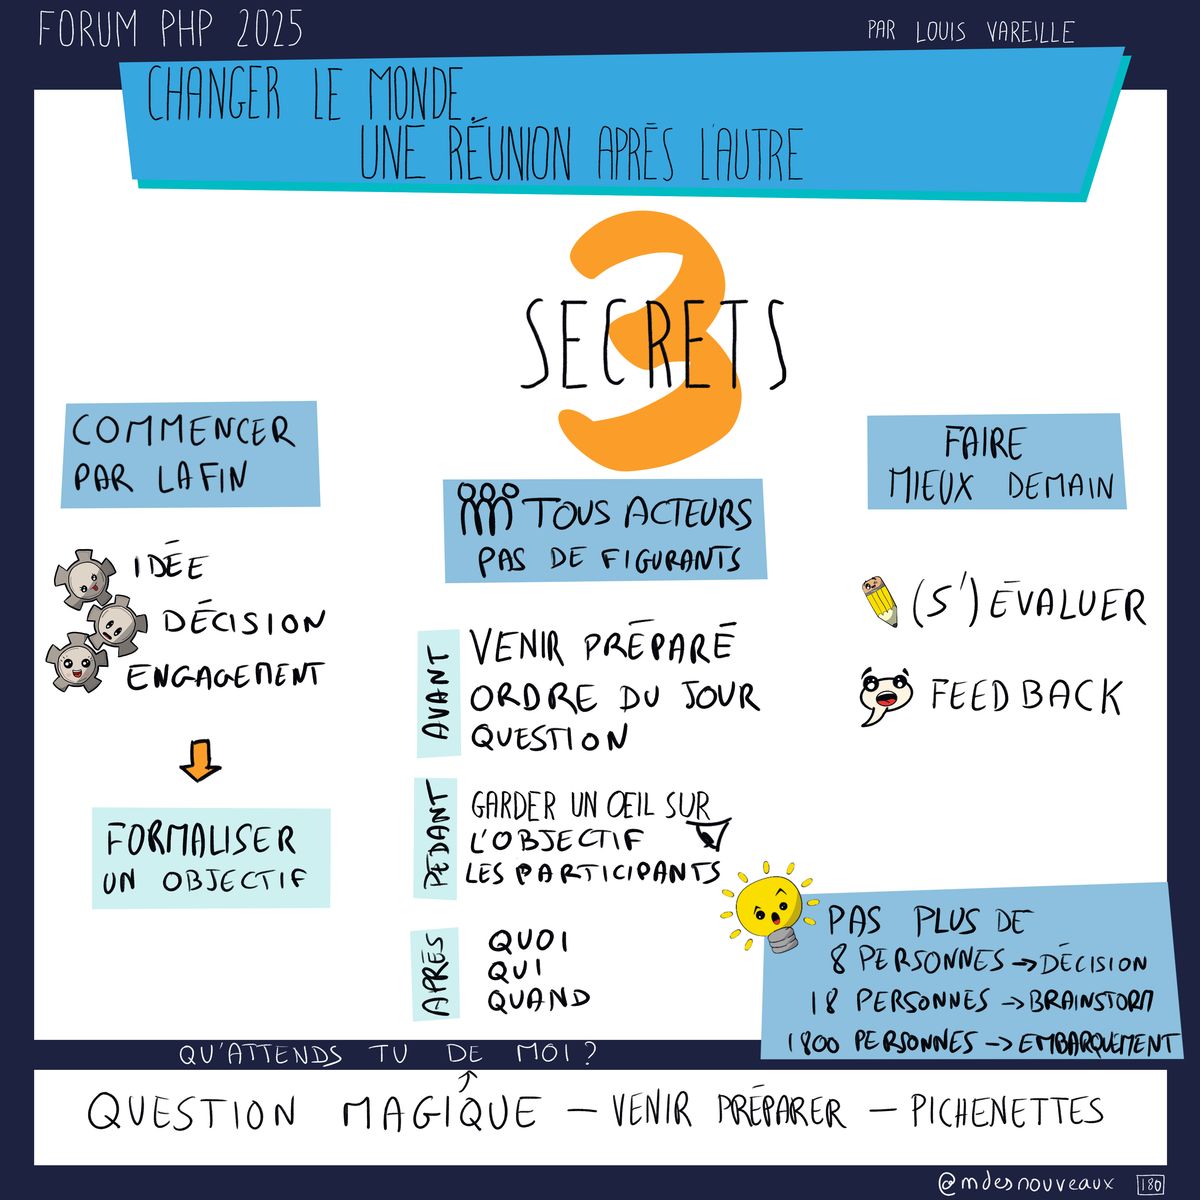 FORUM PHP 2025
PAR LOUIS VAREILLE
CHANGER LE MONDE
UNE RÉUNION APRÈS L'AUTRE
3
SECRETS
COMMENCER
PAR LA FIN
IDÉE
DÉCISION
ENGAGEMENT
FORMALISER
UN OBJECTIF
TOUS ACTEURS
PAS DE FIGURANTS
AVANT
VENIR PRÉPARÉ
ORDRE DU JOUR
QUESTION
PEDANT
GARDER UN ŒIL SUR
L'OBJECTIF
LES PARTICIPANTS
APRÈS
QUOI
QUI
QUAND
FAIRE
MIEUX DEMAIN
(S') ÉVALUER
FEEDBACK
PAS PLUS DE
8 PERSONNES → DÉCISION
18 PERSONNES → BRAINSTORM
1800 PERSONNES → EMBARQUEMENT
QU'ATTENDS TU DE MOI ?
QUESTION MAGIQUE – VENIR PRÉPARER – PICHENETTES
@mdesnouveaux 180